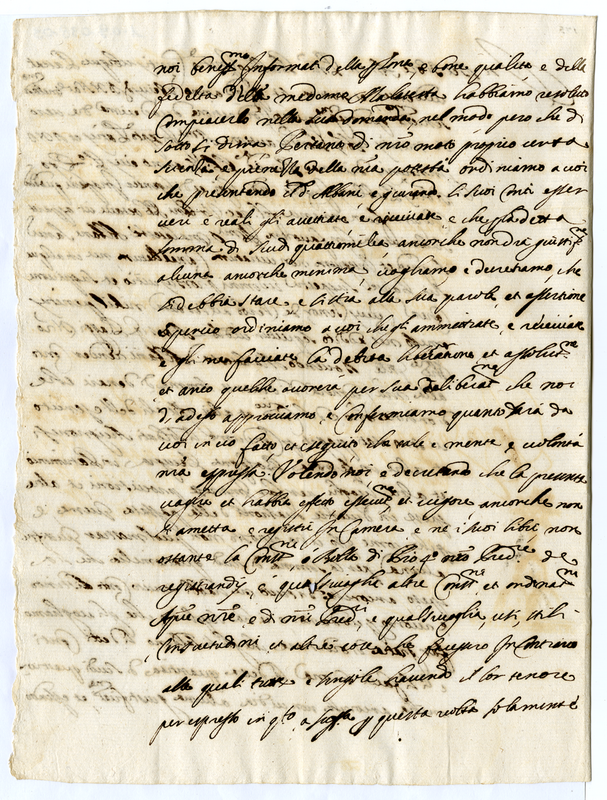 noi benis.mo Informati della sorte, e bone qualità e della
fedeltà della medema habbiamo resoluto
compiacerlo nella sua domanda nel modo però che di
sotto si dirrà Pertanto di nro moto proprio certa
scienza e pienezza della nra potestà ordiniamo a voi
che presentendo il d. Albani e giurando li suoi esser
veri e reali gli accettiate e riceviate e che p la detta
somma di scudi quattromilia ancorche non dia giustif.ne
alcuna ancorche minima, vogliamo e decretiamo, che
si debbia stare, e si stia alla sua parola, et assertione
e perciò ordiniamo a voi che gli ammettiate, e riceviate
e gli ne facciate la debita liberatione, et assolut.ne
et anco quebbe per sua deliberat.ne che noi
d'adesso approviamo, e confermiamo quanto sarà da
voi in ciò fatto et eseguito che tale è mente, e volontà
nra espressa Volendo noi e decretando che la presente
vaglia et habbia effetto essecut.ne et vigore ancorche non
si ametta e registri In Camera e ne i suoi libri non
ostante la Const.ne o Bolla di Pio 4.o nro Pred.re de
registrandis, e qualsivoglia altre Const.ni et ordinat.ni
Apce nre e di nri Pred.ri e qualsivoglia usi, stili
consuetudini et altre cose che facessero In Contrario
alle quali tutte e singole havendo il lor tenore
per espresso in q.to a p questa volta solamente